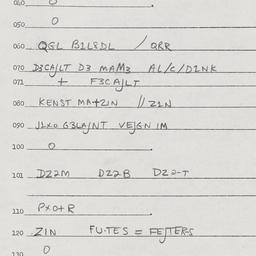 040 0
050 0
060 QGL B1L8DL / QRR
070 D3CAJLT D3 MAM3 AL/C/D1NK
071 + F3CAJLT
080 KEN3T MA+ZIN // Z1N
090 J1XO G3LAJNT VEJGN IM
100 0
101 DZ2M DZ2B DZ2-T
110 PXO+R
120 ZIN FU-TES = FEJTER-S
130 0